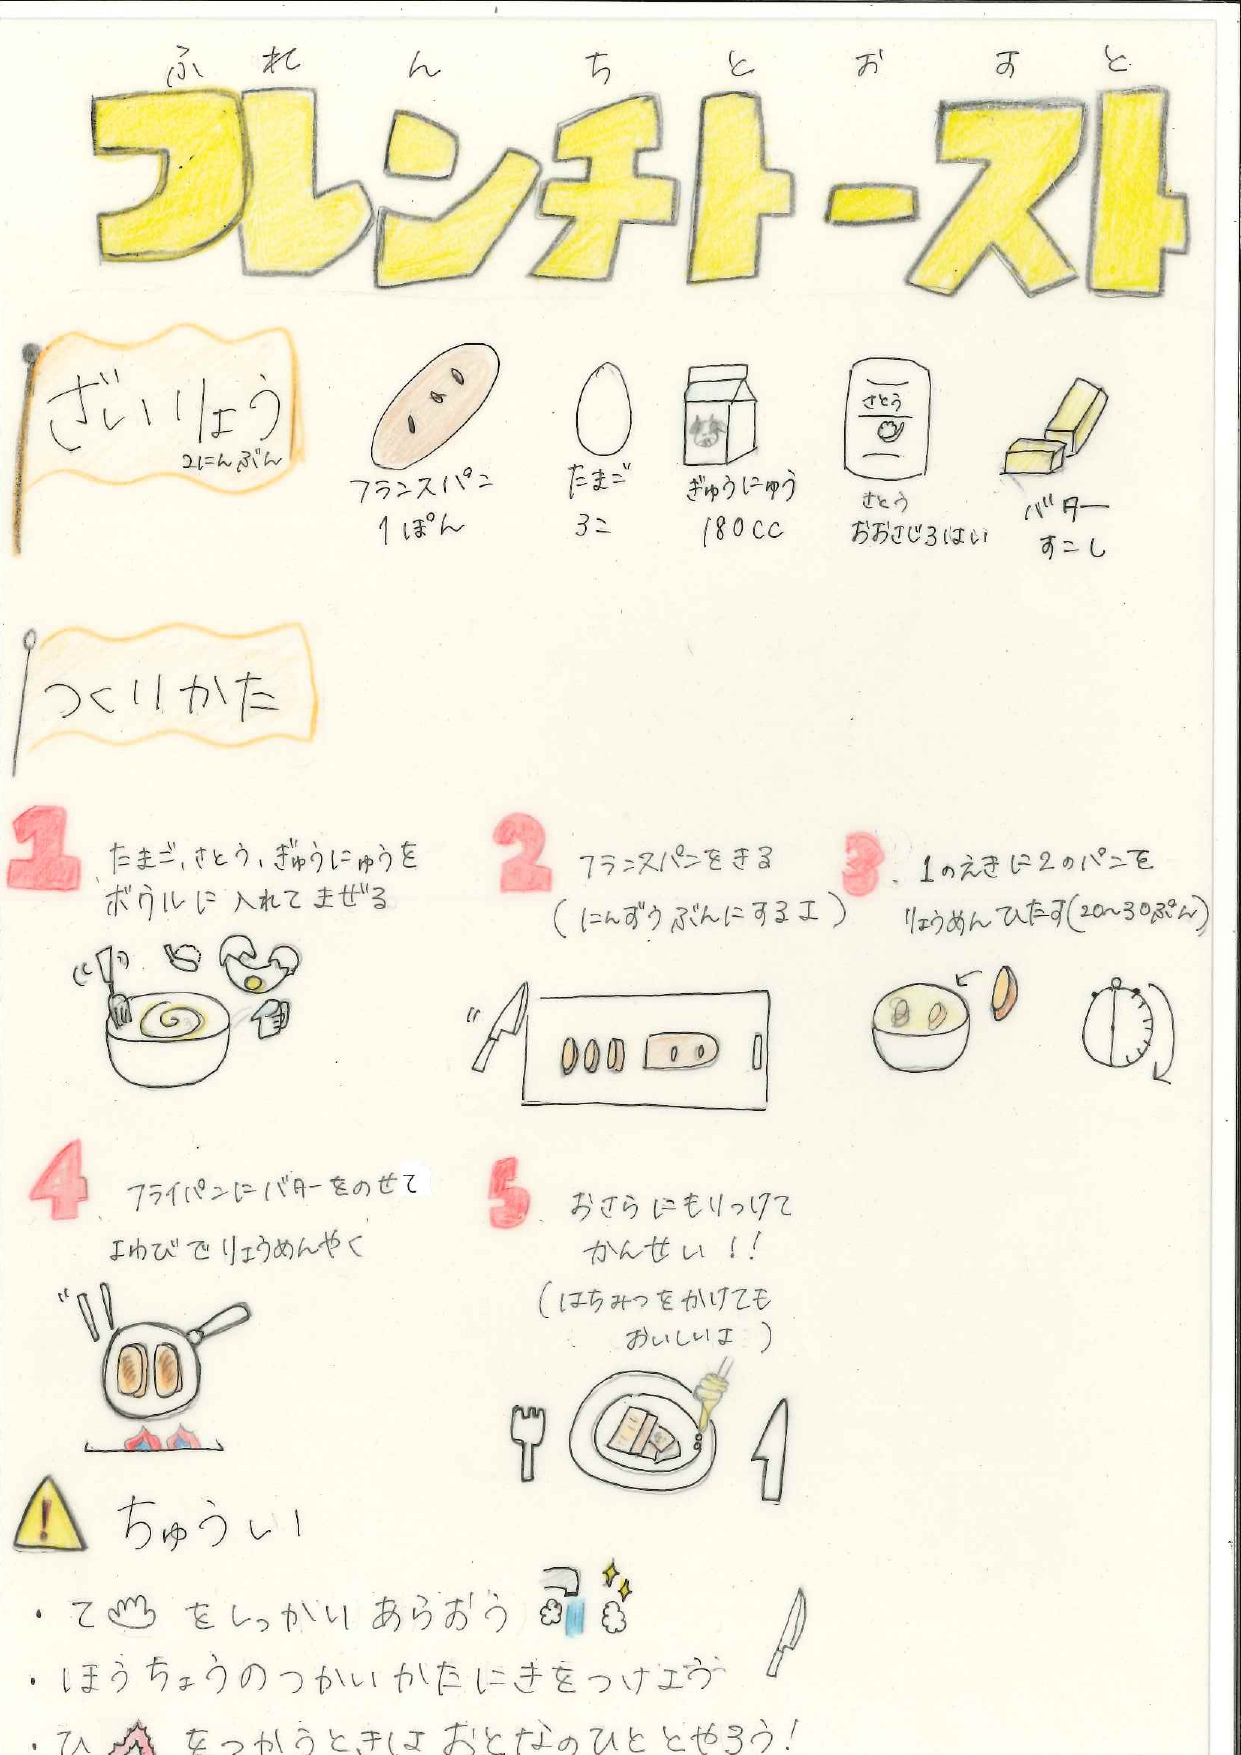 ふれんちとおすと
フレンチトースト
ざいりょう
2にんぶん
フランスパン
1ぽん
たまご
3こ
ぎゅうにゅう
180cc
さとう
さとう
おおさじ3ばい
バター
すこし
つくりかた
1
たまご、さとう、ぎゅうにゅうを
ボウルに入れてまぜる
2
フランスパンをきる
(にんずうぶんにするよ)
3
1のえきに2のパンを
りょうめんひたす(20〜30ぷん)
4
フライパンにバターをのせて
よわびでりょうめんやく
5
おさらにもりつけて
かんせい!!
(はちみつをかけても
おいしいよ)
! ちゅうい!
・てをしっかりあらおう
・ほうちょうのつかいかたにきをつけよう
・ひをつかうときはおとなのひととやろう!